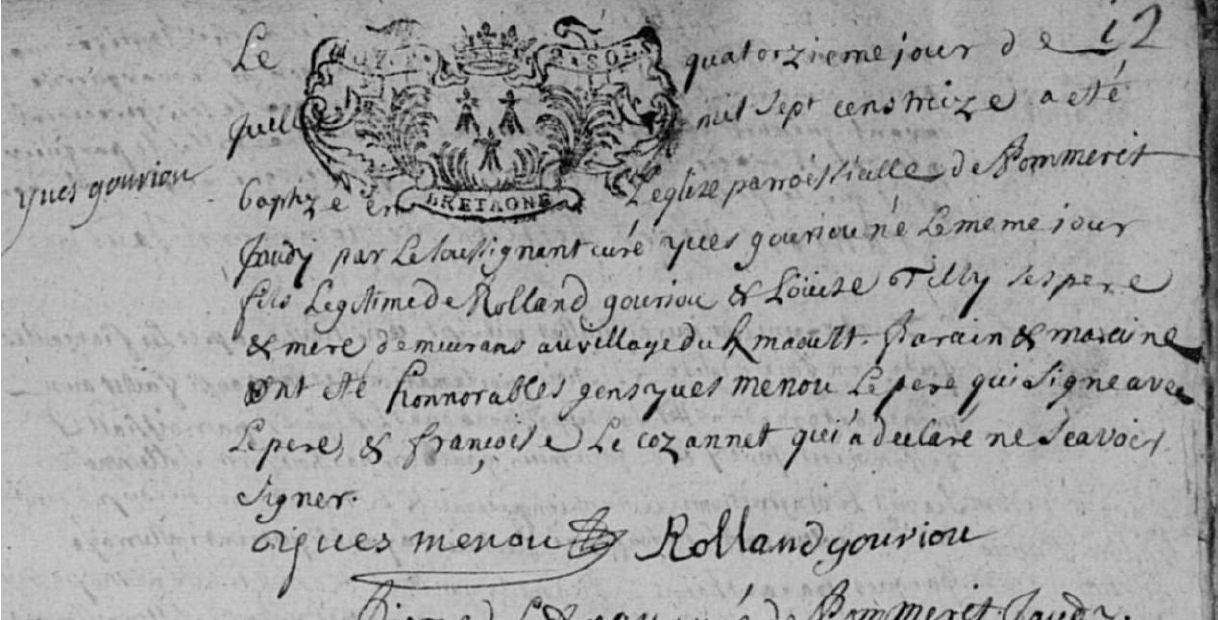 12
Le quatorzieme jour de
Juill mil sept cens treize a eté
Yves gouriou
baptizé en L'eglize parroissialle de Pommerit
BRETAGNE
Jaudy par Le soussignant curé yves gouriou né Le meme jour
fils Legitime de Rolland gouriou & Loüise Tilly ses pere
& mere demeurans au village du Kmaoult. Parain & maraine
ont eté honnorables gens yves menou Le pere qui signe avec
Le pere, & françoise Le cozannet qui a declaré ne sçavoir
signer.
Yves menou Rolland gouriou
curé de Pommerit Jaudy.